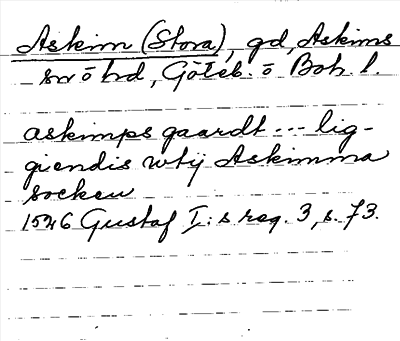 Askim (Stora), gd, Askims
sn o hd, Göteb. o Boh. l.
askimps gaardt --- lig-
giendis wtij Askimma
socken
1546 Gustaf I:s reg. 3, s. 73.